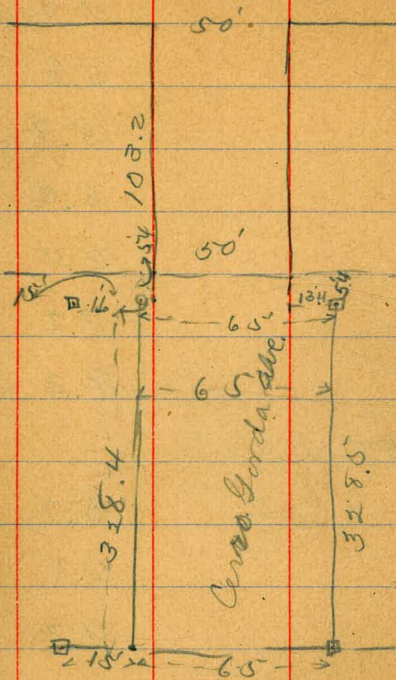 50'
103.2
50'
54
11
13.11
54
65
65
Cerro Gordo Ave.
328.4
328.5
15
65